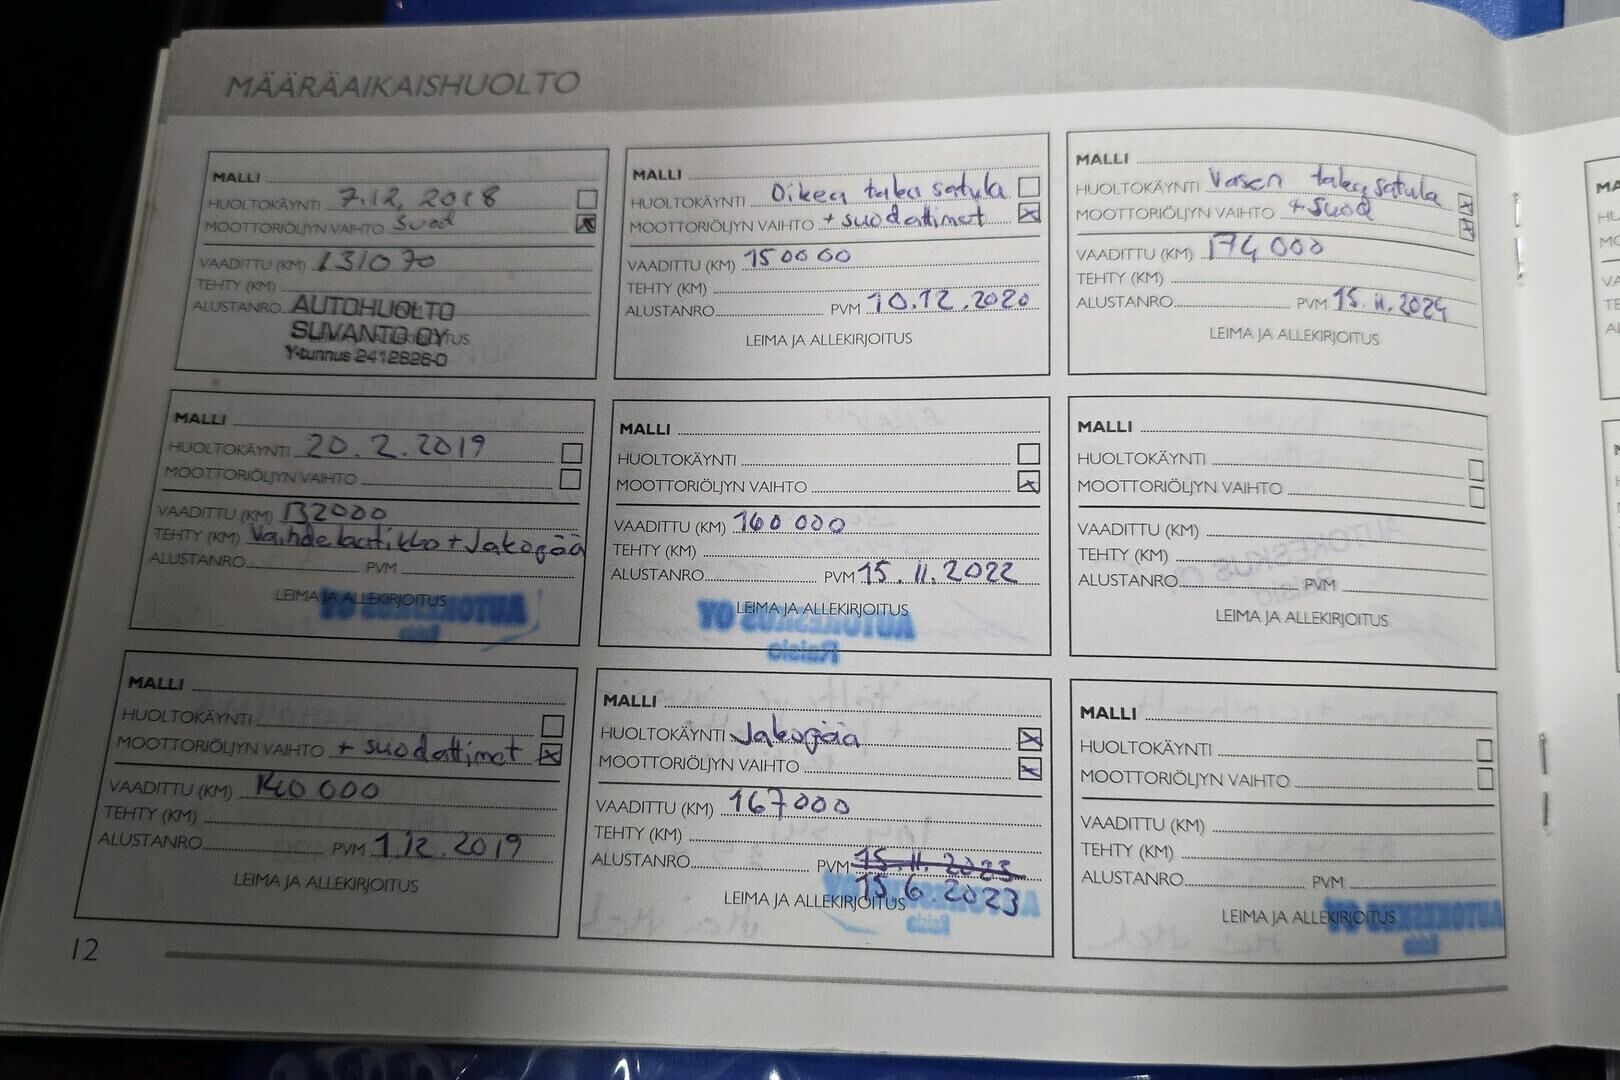 MÄÄRÄAIKAISHUOLTO
MALLI
HUOLTOKÄYNTI 7.12.2018
MOOTTORIÖLJYN VAIHTO suod
VAADITTU (KM) 131070
TEHTY (KM)
ALUSTANRO
AUTOHUOLTO
SUVANTO OY
Y-tunnus 2412826-0
MALLI
HUOLTOKÄYNTI 20.2.2019
MOOTTORIÖLJYN VAIHTO
VAADITTU (KM) 132000
TEHTY (KM) Vaihdelaatikko + Jakopää
ALUSTANRO PVM
LEIMA JA ALLEKIRJOITUS
MALLI
HUOLTOKÄYNTI
MOOTTORIÖLJYN VAIHTO + suodattimet
VAADITTU (KM) 140 000
TEHTY (KM)
ALUSTANRO PVM 1.12.2019
LEIMA JA ALLEKIRJOITUS
MALLI
HUOLTOKÄYNTI Oikea taka satula
MOOTTORIÖLJYN VAIHTO + suodattimet
VAADITTU (KM) 150000
TEHTY (KM)
ALUSTANRO PVM 10.12.2020
LEIMA JA ALLEKIRJOITUS
MALLI
HUOLTOKÄYNTI
MOOTTORIÖLJYN VAIHTO
VAADITTU (KM) 160 000
TEHTY (KM)
ALUSTANRO PVM 15.11.2022
LEIMA JA ALLEKIRJOITUS
MALLI
HUOLTOKÄYNTI Jakopää
MOOTTORIÖLJYN VAIHTO
VAADITTU (KM) 167000
TEHTY (KM)
ALUSTANRO PVM 15.11.2023
15.6.2023
LEIMA JA ALLEKIRJOITUS
MALLI
HUOLTOKÄYNTI Vasen taka satula
MOOTTORIÖLJYN VAIHTO + suod
VAADITTU (KM) 174 000
TEHTY (KM)
ALUSTANRO PVM 15.11.2024
LEIMA JA ALLEKIRJOITUS
MALLI
HUOLTOKÄYNTI
MOOTTORIÖLJYN VAIHTO
VAADITTU (KM)
TEHTY (KM)
ALUSTANRO PVM
LEIMA JA ALLEKIRJOITUS
MALLI
HUOLTOKÄYNTI
MOOTTORIÖLJYN VAIHTO
VAADITTU (KM)
TEHTY (KM)
ALUSTANRO PVM
LEIMA JA ALLEKIRJOITUS
12